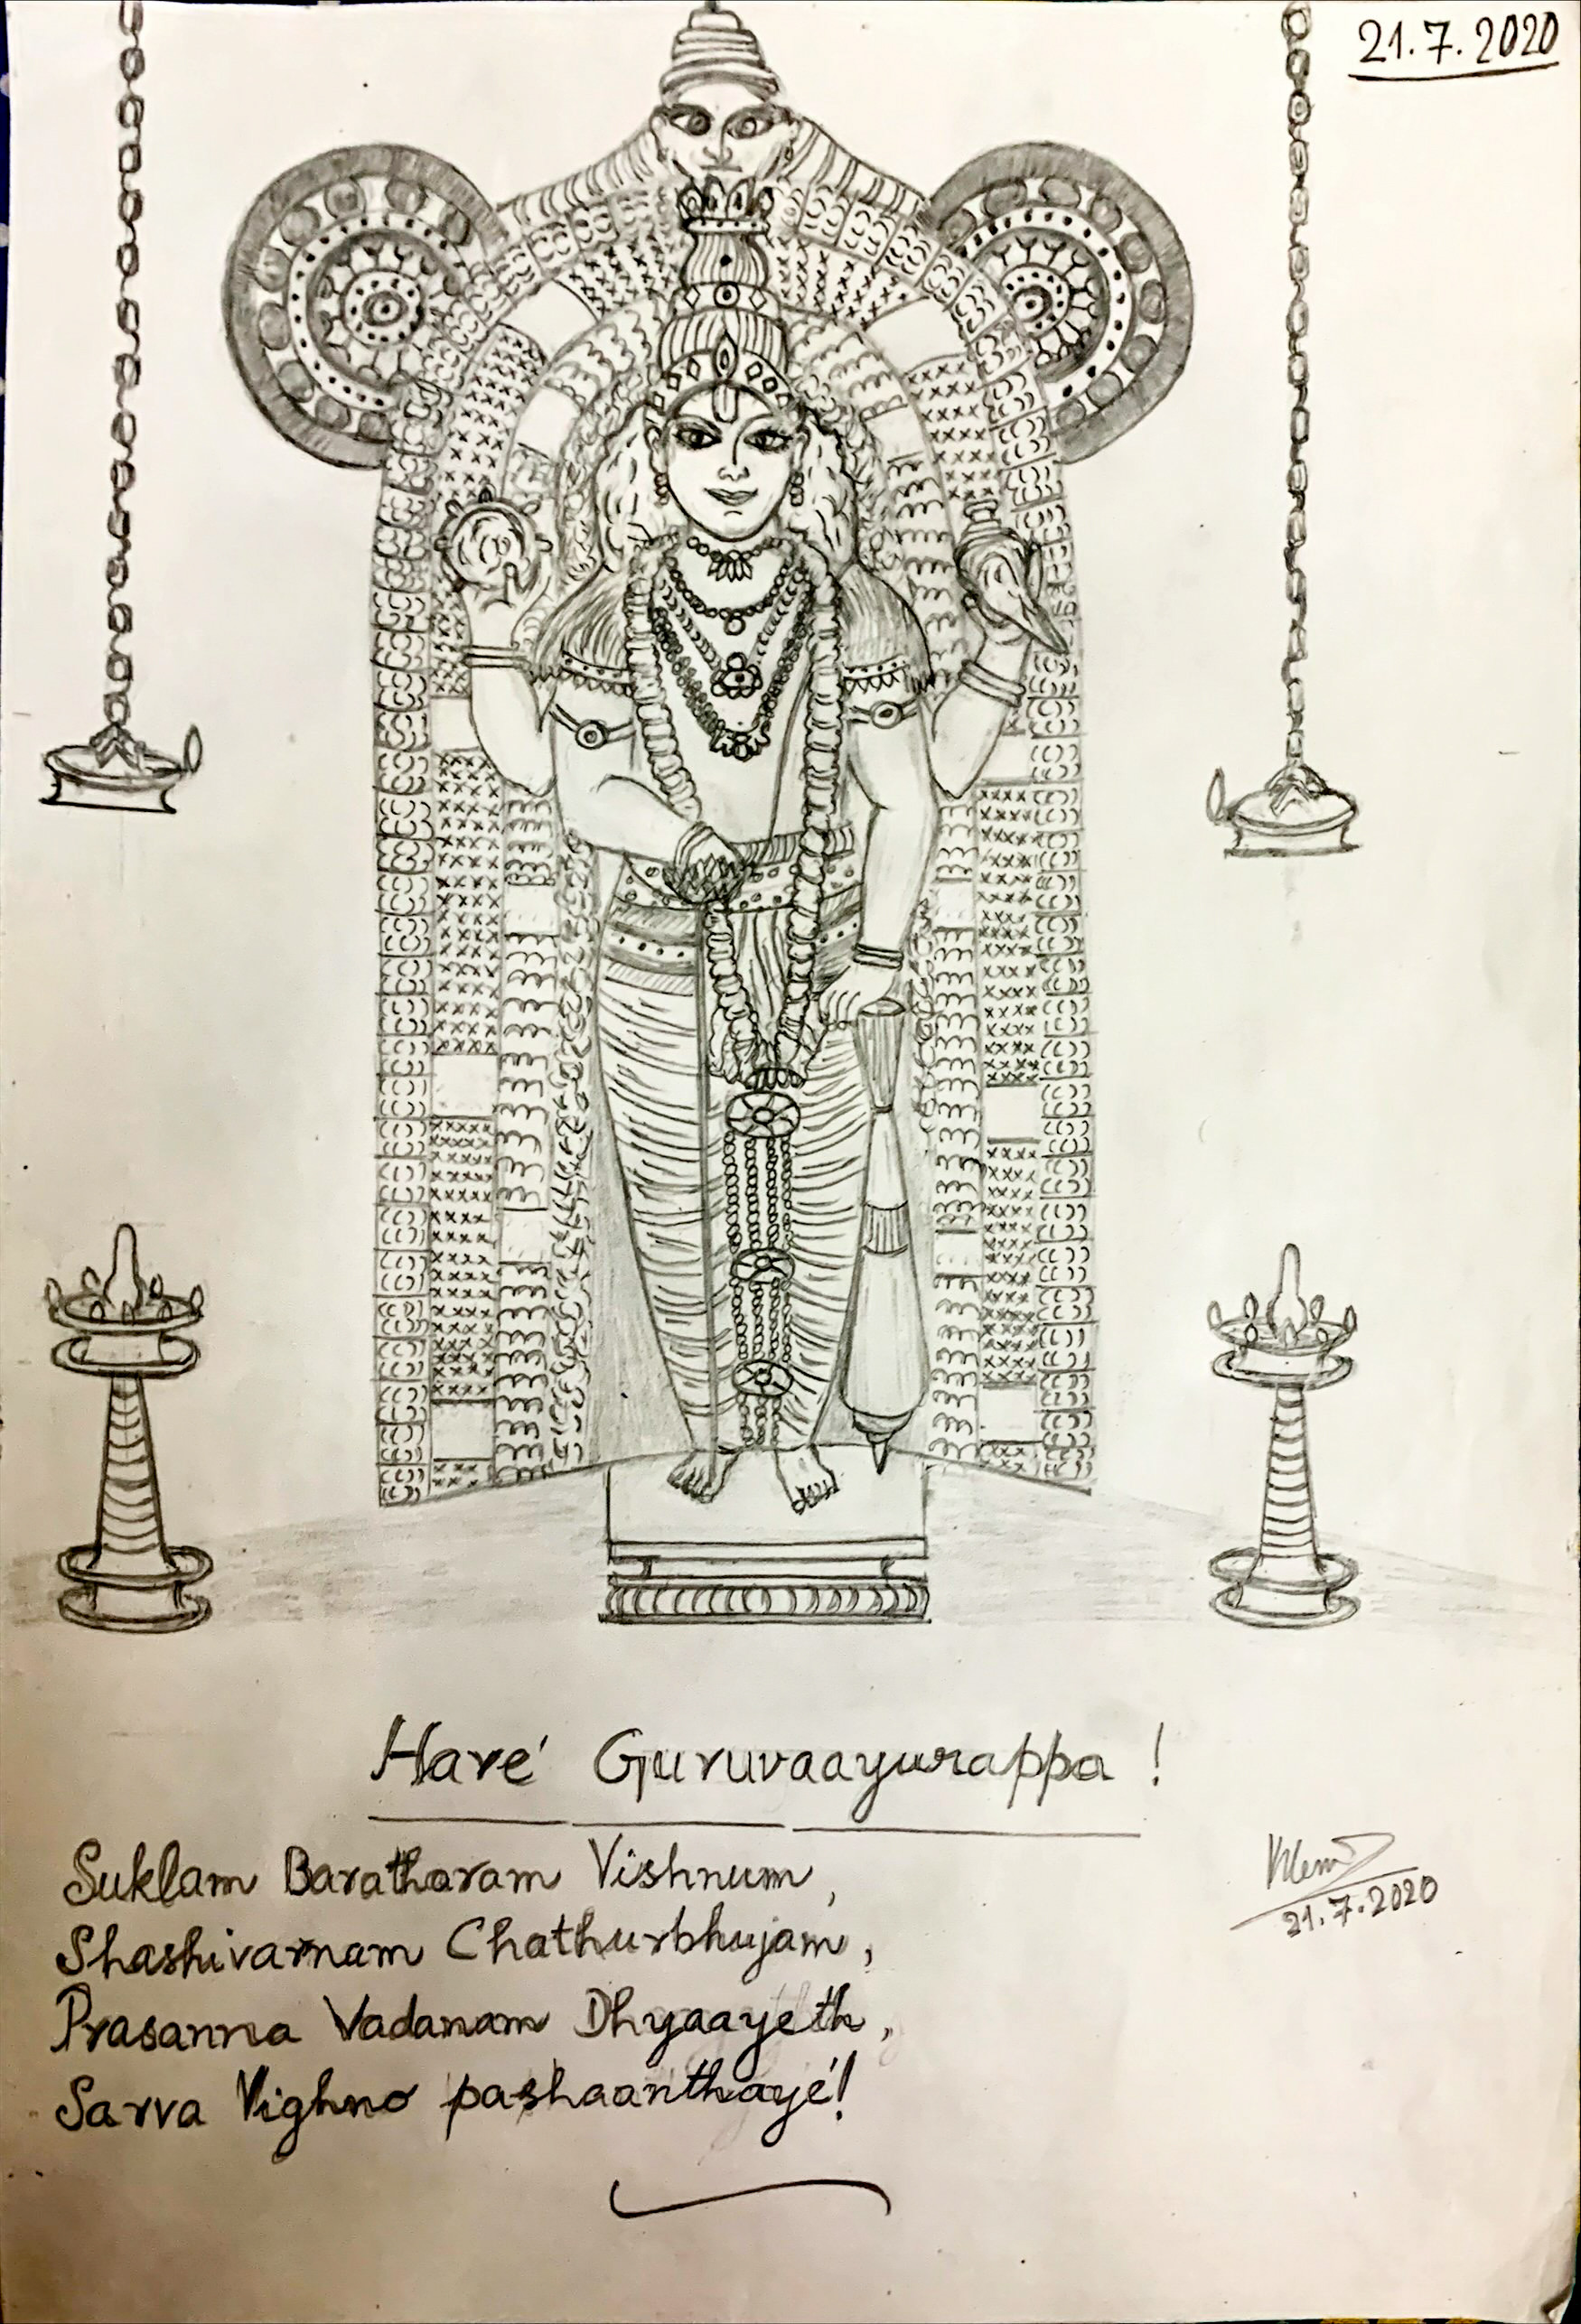 21.7.2020
Haré Guruvaayurappa!
Suklam Baratharam Vishnum,
Shashivarnam Chathurbhujam,
Prasanna Vadanam Dhyaayeth,
Sarva Vighno pashaanthayé!
21.7.2020